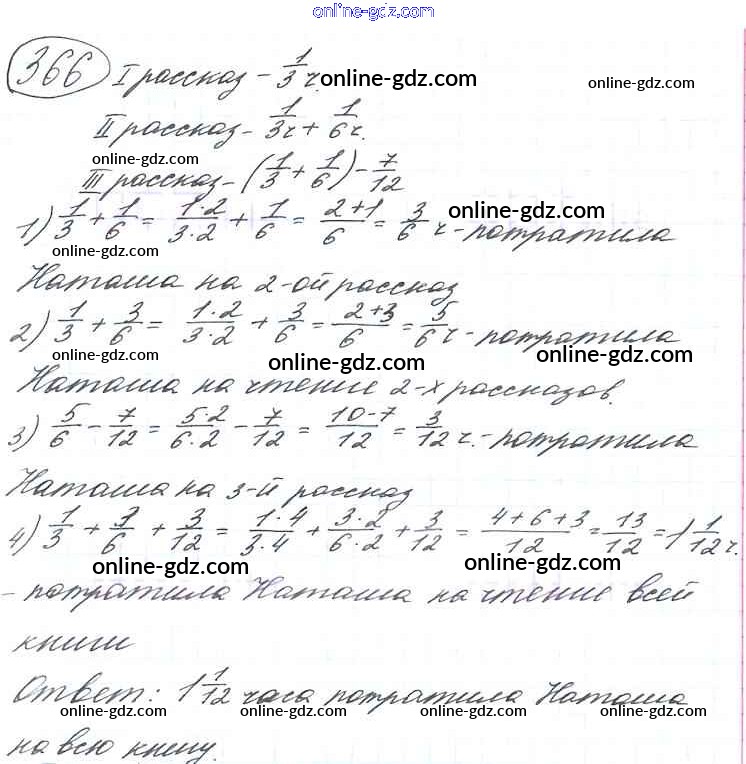 online-gdz.com
366 I рассказ - 1/3 ч. online-gdz.com online-gdz.com
II рассказ - 1/3 ч + 1/6 ч.
online-gdz.com
III рассказ - (1/3 + 1/6) - 7/12
1) 1/3 + 1/6 = 1·2/3·2 + 1/6 = 2+1/6 = 3/6 ч - потратила online-gdz.com
Наташа на 2-ой рассказ
2) 1/3 + 3/6 = 1·2/3·2 + 3/6 = 2+3/6 = 5/6 ч - потратила
online-gdz.com online-gdz.com
Наташа на чтение 2-х рассказов.
3) 5/6 - 7/12 = 5·2/6·2 - 7/12 = 10-7/12 = 3/12 ч. - потратила
Наташа на 3-й рассказ
4) 1/3 + 3/6 + 3/12 = 1·4/3·4 + 3·2/6·2 + 3/12 = 4+6+3/12 = 13/12 = 1 1/12 ч.
online-gdz.com online-gdz.com
- потратила Наташа на чтение всей
книги
Ответ: 1 1/12 часа потратила Наташа
online-gdz.com online-gdz.com online-gdz.com online-gdz.com
на всю книгу.